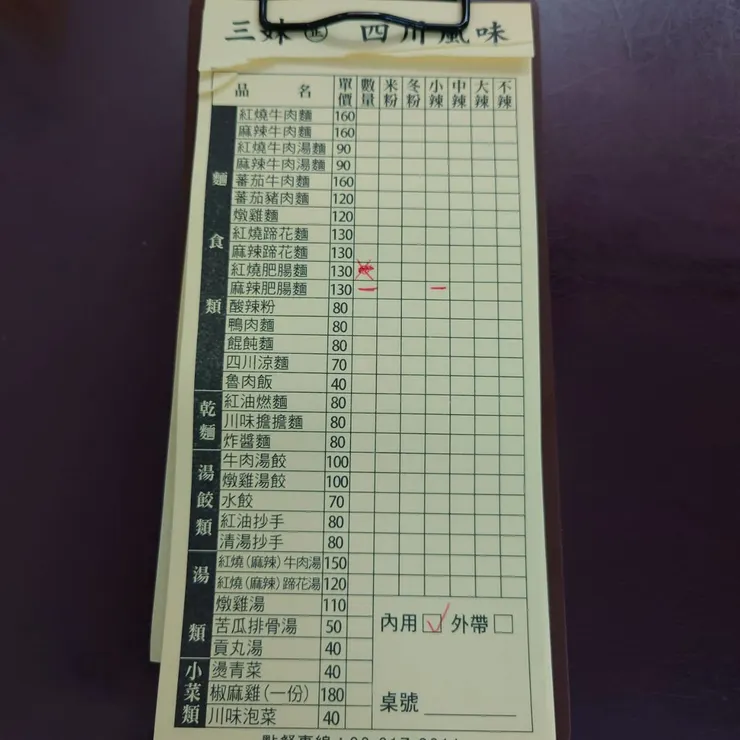 三妹 正 四川風味
品名 單價 數量 米粉 冬粉 小辣 中辣 大辣 不辣
麵食類
紅燒牛肉麵 160
麻辣牛肉麵 160
紅燒牛肉湯麵 90
麻辣牛肉湯麵 90
蕃茄牛肉麵 160
蕃茄豬肉麵 120
燉雞麵 120
紅燒蹄花麵 130
麻辣蹄花麵 130
紅燒肥腸麵 130
麻辣肥腸麵 130 一 一
酸辣粉 80
鴨肉麵 80
餛飩麵 80
四川涼麵 70
魯肉飯 40
乾麵
紅油燃麵 80
川味擔擔麵 80
炸醬麵 80
湯餃類
牛肉湯餃 100
燉雞湯餃 100
水餃 70
紅油抄手 80
清湯抄手 80
湯類
紅燒(麻辣)牛肉湯 150
紅燒(麻辣)蹄花湯 120
燉雞湯 110
苦瓜排骨湯 50
貢丸湯 40
小菜類
燙青菜 40
椒麻雞(一份) 180
川味泡菜 40
內用 ✓ 外帶
桌號